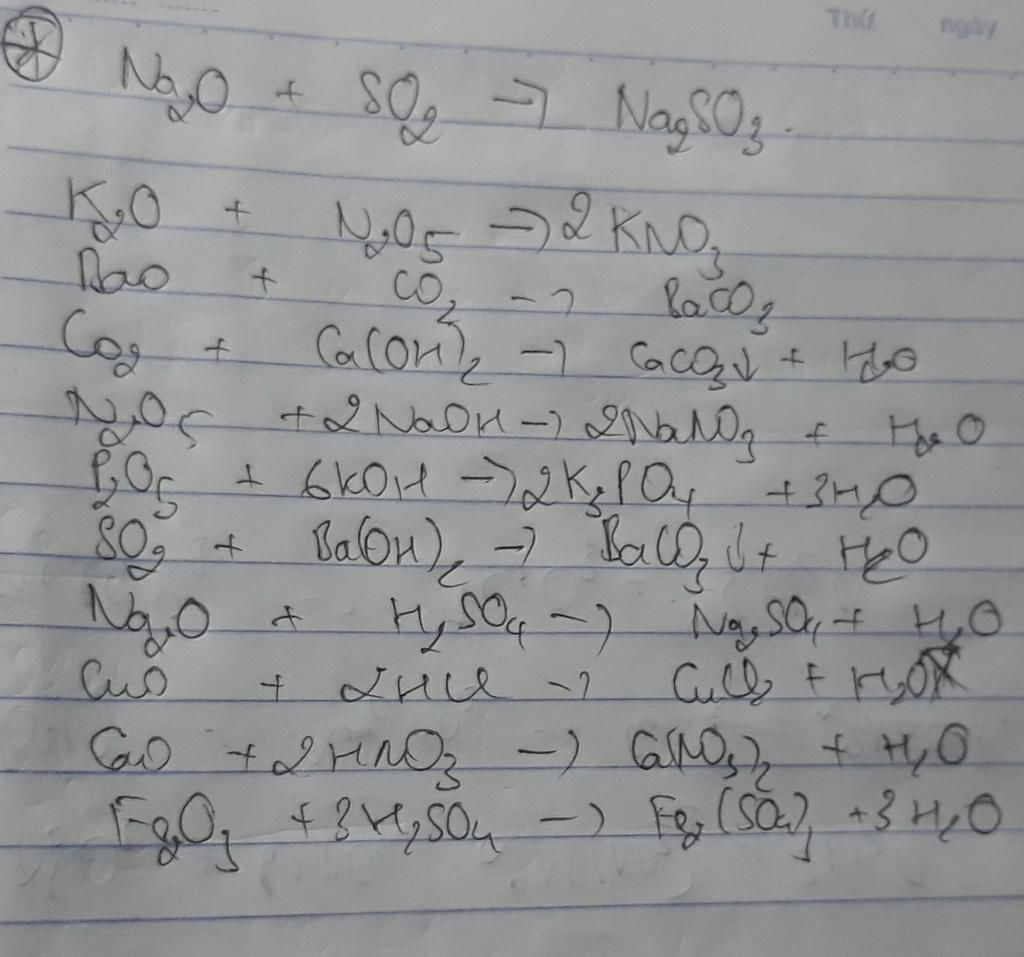 Thứ ngày
Na₂O + SO₂ → Na₂SO₃.
K₂O + N₂O₅ → 2KNO₃
BaO + CO₂ → BaCO₃
CO₂ + Ca(OH)₂ → CaCO₃↓ + H₂O
N₂O₅ + 2NaOH → 2NaNO₃ + H₂O
P₂O₅ + 6KOH → 2K₃PO₄ + 3H₂O
SO₂ + Ba(OH)₂ → BaCO₃↓ + H₂O
Na₂O + H₂SO₄ → Na₂SO₄ + H₂O
CuO + 2HCl → CuCl₂ + H₂O
CaO + 2HNO₃ → Ca(NO₃)₂ + H₂O
Fe₂O₃ + 3H₂SO₄ → Fe₂(SO₄)₃ + 3H₂O